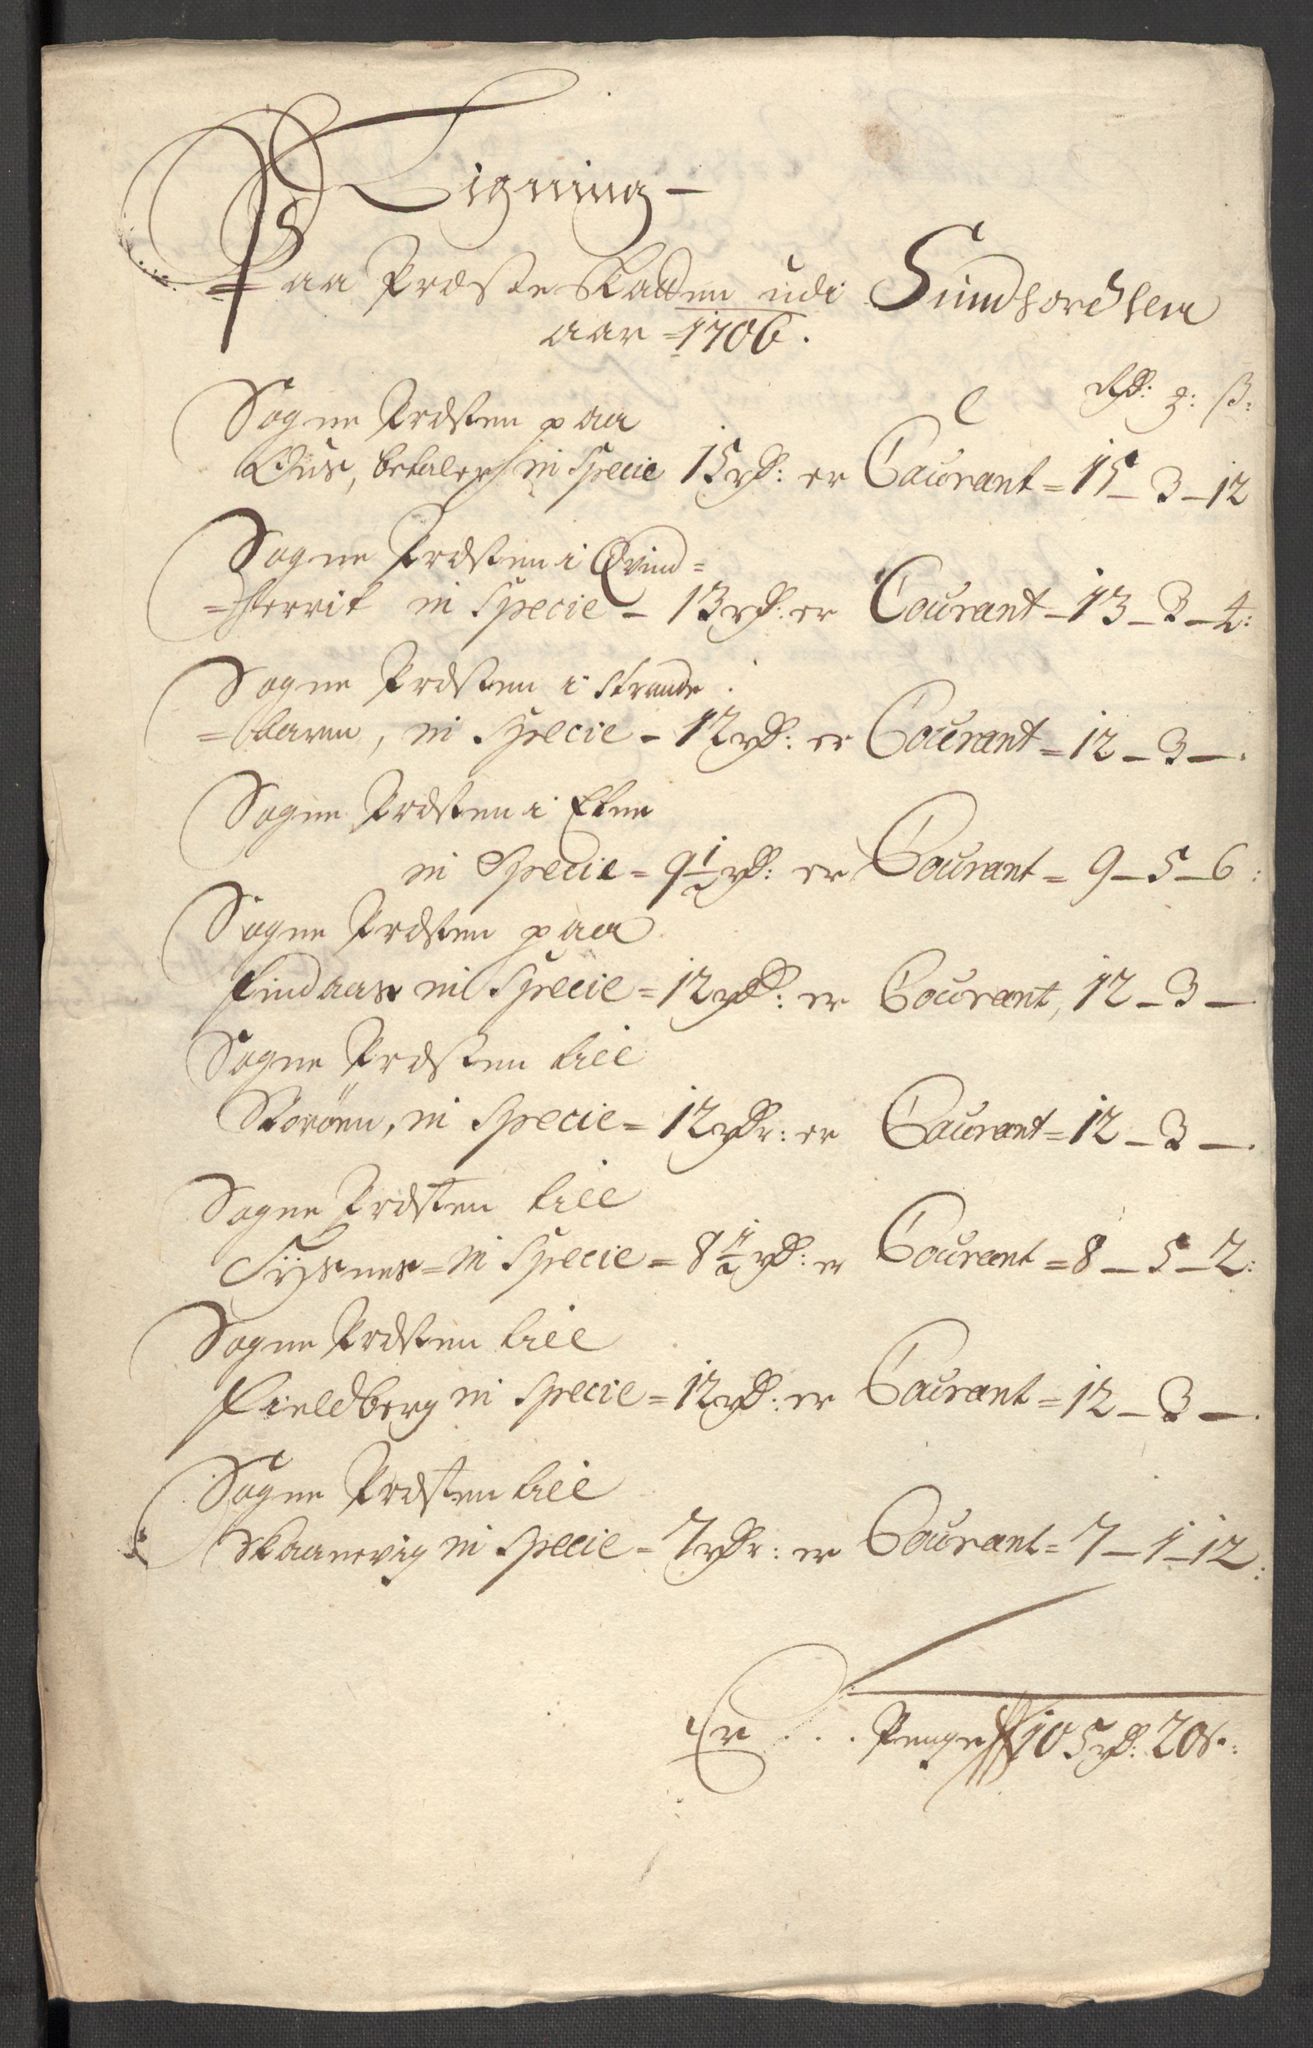 Ligning
Paa Præste Skatten udi Sundhordlen
aar 1706.
Rdr: ß:
Sogne Præsten paa
Ous, betaler in Specie 15 rdr: er Courant = 15 - 3 - 12
Sogne Præsten i Qvind=
=herrit in Specie - 13 rdr: er Courant - 13 - 3 - 4:
Sogne Præsten i Strande
=barm, in Specie - 12 rdr: er Courant = 12 - 3 -
Sogne Præsten i Etne
in Specie = 9 1/2 rdr: er Courant = 9 - 5 - 6:
Sogne Præsten paa
Findaas in Specie = 12 rdr: er Courant, 12 - 3 -
Sogne Præsten till
Storöen, in Specie = 12 rdr: er Courant = 12 - 3 -
Sogne Præsten till
Tysnes = in Specie = 8 1/2 rdr: er Courant = 8 - 5 - 2:
Sogne Præsten till
Fieldberg in Specie = 12 rdr: er Courant = 12 - 3 -
Sogne Præsten till
Skaanevig in Specie = 7 rdr: er Courant = 7 - 1 - 12:
Er . . . Penge 105 rdr: 20 s: